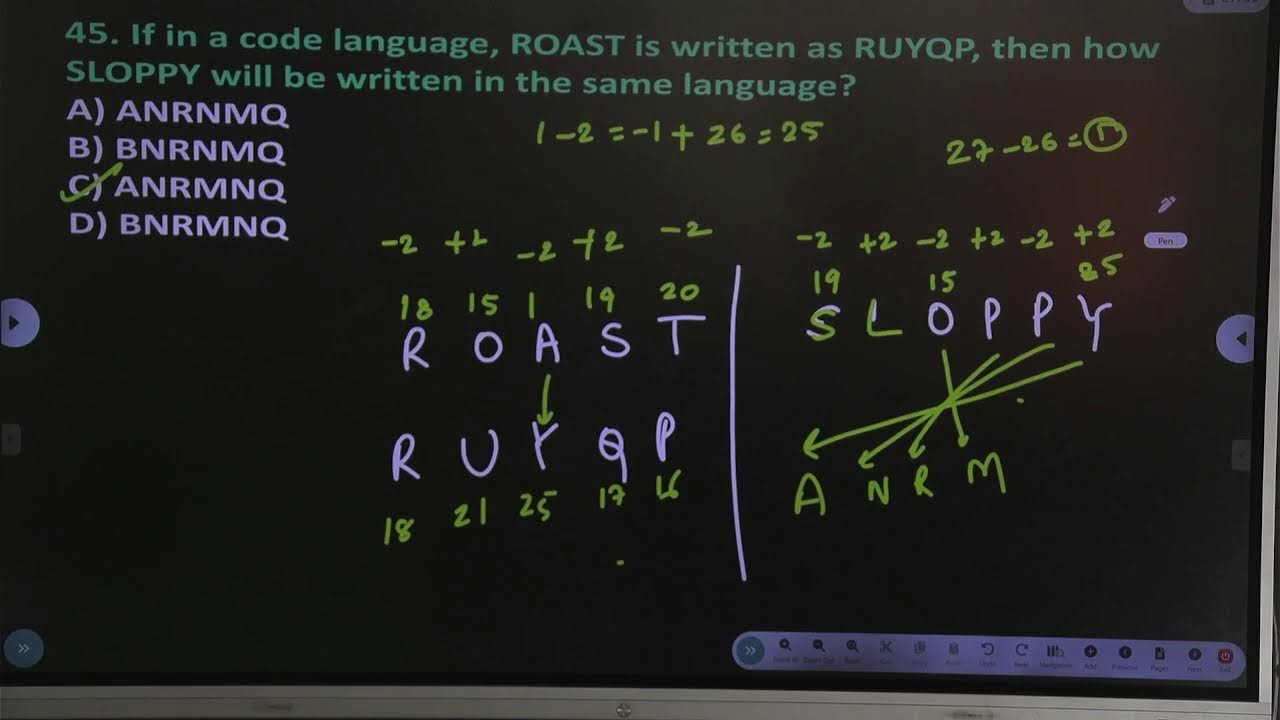 45. If in a code language, ROAST is written as RUYQP, then how
SLOPPY will be written in the same language?
A) ANRNMQ
B) BNRNMQ
C) ANRMNQ
D) BNRMNQ
1-2=-1+26=25
27-26=1
Pen
-2 +2 -2 +2 -2
18 15 1 19 20
R O A S T
R U Y Q P
18 21 25 17 16
-2 +2 -2 +2 -2 +2
19 15 25
S L O P P Y
A N R M
Zoom In Zoom Out Undo Redo Navigation Add Previous Pages Next Exit